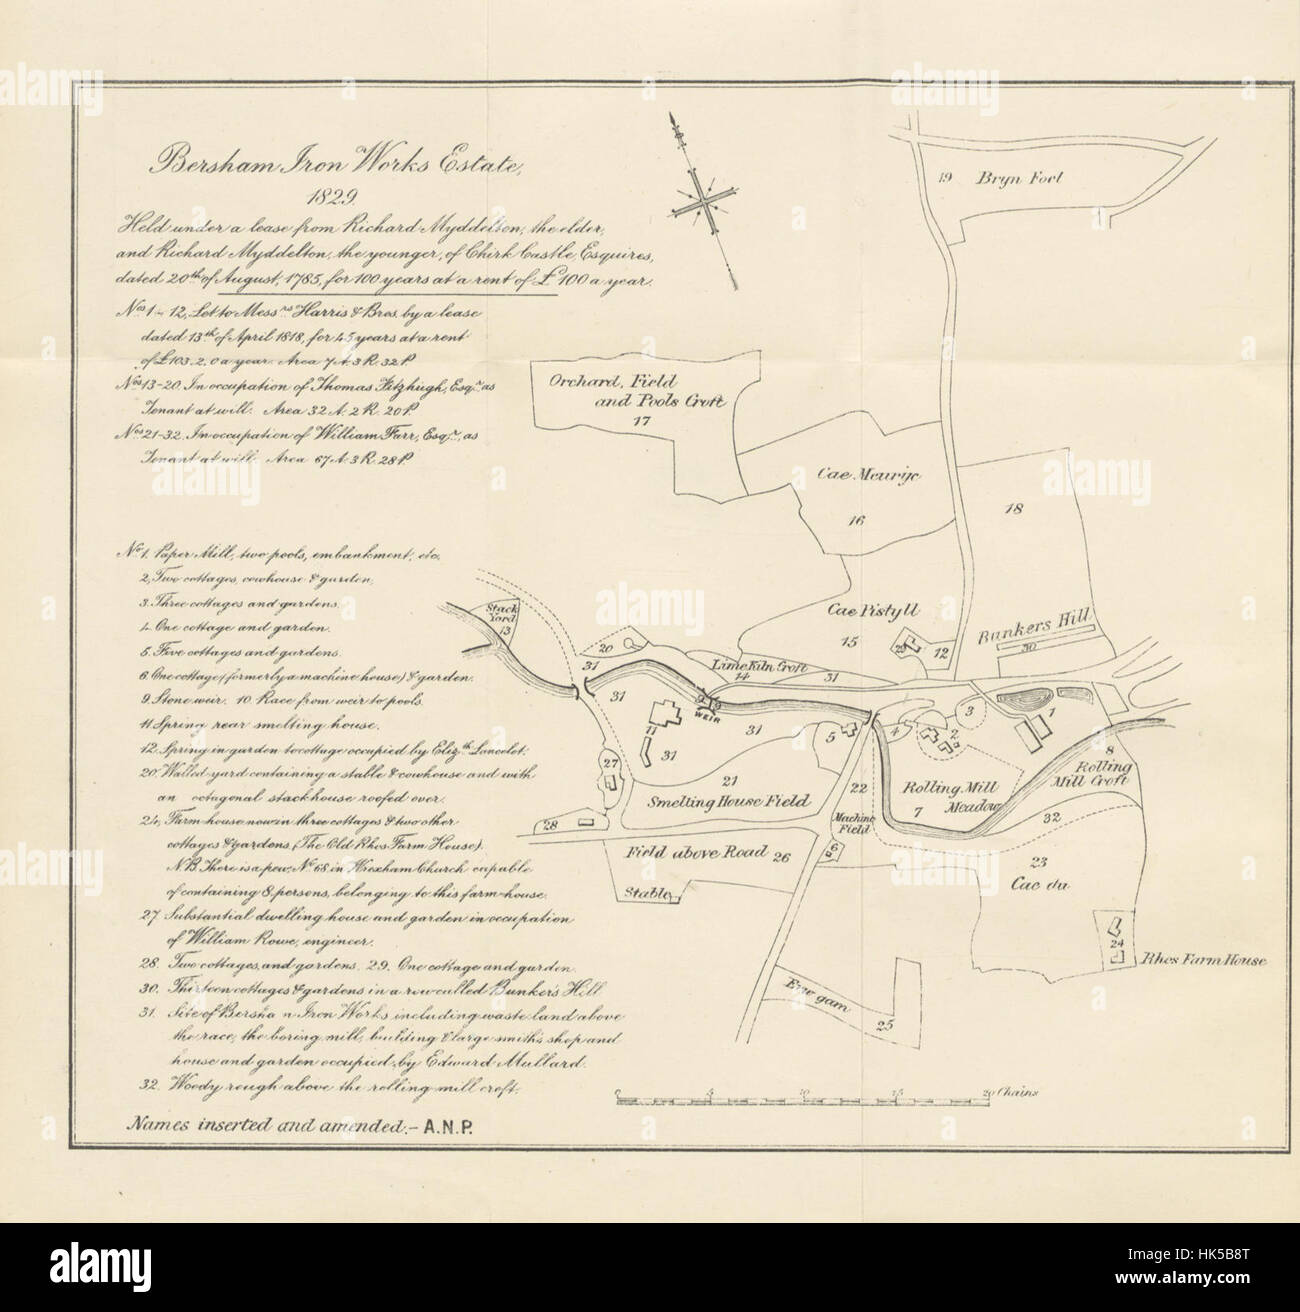 Bersham Iron Works Estate,
1829.
Held under a lease from Richard Myddelton, the elder,
and Richard Myddelton, the younger, of Chirk Castle, Esquires,
dated 20th of August, 1785, for 100 years at a rent of £100 a year.
Nos 1-12, Let to Messrs Harris & Bros. by a lease
dated 13th of April 1818, for 45 years at a rent
of £103.2.0 a year. Area 7 A. 3 R. 32 P.
Nos 13-20. In occupation of Thomas Fitzhugh, Esqr, as
Tenant at will. Area 32 A. 2 R. 20 P.
Nos 21-32. In occupation of William Farr, Esqr, as
Tenant at will. Area 67 A. 3 R. 28 P.
No 1. Paper Mill, two pools, embankment, etc.
2, Two cottages, cowhouse & garden,
3. Three cottages and gardens.
4. One cottage and garden.
5. Five cottages and gardens.
6. One cottage (formerly a machine house) & garden.
9. Stone weir. 10. Race from weir to pools.
11. Spring rear smelting house.
12. Spring in garden to cottage occupied by Elizth Lancelot.
20. Walled yard containing a stable & cowhouse and with
an octagonal stackhouse roofed over.
24, Farm house now in three cottages & two other
cottages & gardens, (The Old Rhos Farm House).
N.B. There is a pew, No 68 in Wrexham Church capable
of containing 8 persons, belonging to this farm-house.
27. Substantial dwelling house and garden in occupation
of William Rowe, engineer.
28. Two cottages, and gardens. 29. One cottage and garden.
30. Thirteen cottages & gardens in a row called Bunker's Hill.
31. Site of Bersham Iron Works, including waste land above
the race, the boring mill, building & large smith's shop and
house and garden occupied, by Edward Mullard.
32. Woody rough above the rolling mill croft.
Names inserted and amended.- A.N.P.
19 Bryn Foel
Orchard, Field
and Pools Croft
17
Cae Meurig
16
18
Cae Pistyll
15
Bunkers Hill
30
29
12
Stack
Yard
13
20
31
Lime Kiln Croft
14
31
31
9
WEIR
11
31
31
27
21
Smelting House Field
5
4
3
2
1
8
Rolling
Mill Croft
Rolling Mill
Meadow
7
32
22
Machine
Field
6
28
Field above Road 26
Stable
23
Cae du
24
Rhos Farm House
Erw gam
25
5
10
15
20 Chains
alamy
a
alamy
Image ID: HK5B8T
www.alamy.com